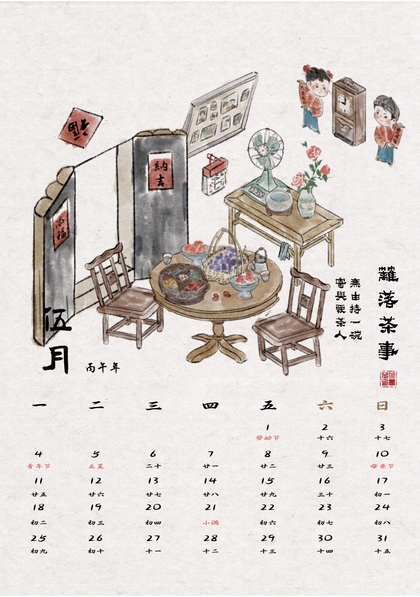 福
納吉
籬落茶事
無由持一碗
寄與愛茶人
伍月
丙午年
一 二 三 四 五 六 日
1 2 3
劳动节 十六 十七
4 5 6 7 8 9 10
青年节 立夏 二十 廿一 廿二 廿三 母亲节
11 12 13 14 15 16 17
廿五 廿六 廿七 廿八 廿九 三十 初一
18 19 20 21 22 23 24
初二 初三 初四 小满 初六 初七 初八
25 26 27 28 29 30 31
初九 初十 十一 十二 十三 十四 十五